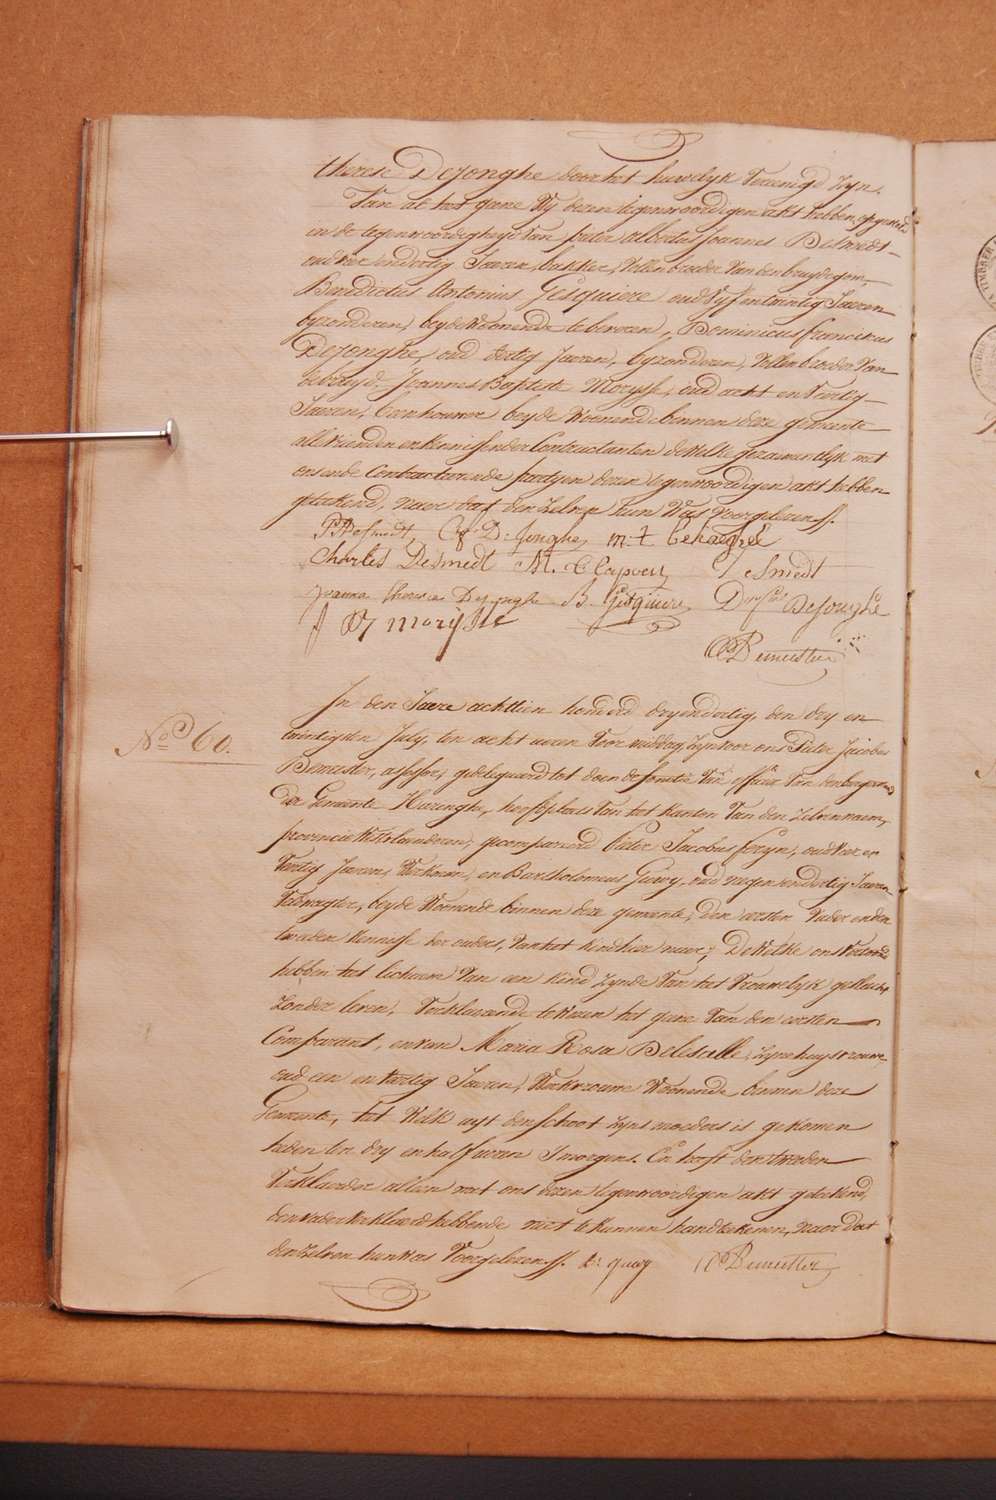 therese DeJonghe door het huwelyk Vereenigd zyn.
Van al het gene Wy dezen tegenwoordigen akt hebben opgemaekt
in de tegenwoordigheyd van pieter albertus Joannes DeSmedt
oud vier en dertig Jaeren, bakker, vollen broeder van den bruydegom,
Benedictus Antonius Gesquiere oud vyf en twintig Jaeren
byzonderen, beyde Woonende te beveren, Dominicus franciscus
DeJonghe, oud dertig Jaeren, byzonderen, vollen broeder van
de bruyd, Joannes Baptiste Morysse, oud acht en Veertig
Jaeren, beenhouwer beyde Woonende binnen deze gemeente
alle vrienden en kennissen der Contractanten dewelke gezamendlyk met
ons ende Contracteerende partyen dezen tegenwoordigen akt hebben
geteekend, naer dat den zelven hun Was Voorgelezen //.
PDeSmedt, D: Jonghe, m: t behaegel
Charles Desmedt M. C Clapven Desmedt
Joanna theresia De Jonghe B. Gesquiere Dcus fcus DeJonghe
J B morysse
Bemeester
No. 60.
In den Jaere achttien honderd dry en dertig, den dry en
twintigsten July, ten acht uren Voor middag, zyn voor ons Pieter Jacobus
Bemeester, assessor, gedelegueerd tot doen de functie van officier van den burgerstand
der Gemeente Haringhe, hoofdplaets van het kanton van den zelven naem,
provincie Westvlaenderen, gecompareerd Pieter Jacobus freyn, oud vier en
Veertig Jaeren, Werkman, en Bartholomeus Quaey, oud negen en dertig Jaeren
Veldwagter, beyde Woonende binnen deze gemeente, den eersten Vader en den
tweeden kennisse der ouders, van het kind hier naer; Dewelke ons Vertoond
hebben het lichaem van een kind zynde van het Vrouwelyk geslacht
zonder leven, Verklaerende te wezen het gene van den eersten
Comparant, en van Maria Rosa Deliselle, zyne huysvrouwe
oud een en veertig Jaeren, Werkvrouwe Woonende binnen deze
Gemeente, het Welk uyt den schoot zyns moeders is gekomen
heden ten dry en half uren 's morgens. En heeft den tweeden
Verklaerder alleen met ons dezen tegenwoordigen akt geteekend,
den vader verklaerd hebbende niet te kunnen handteekenen, naer dat
den zelven hun was Voorgelezen //. B: quaey Bemeester